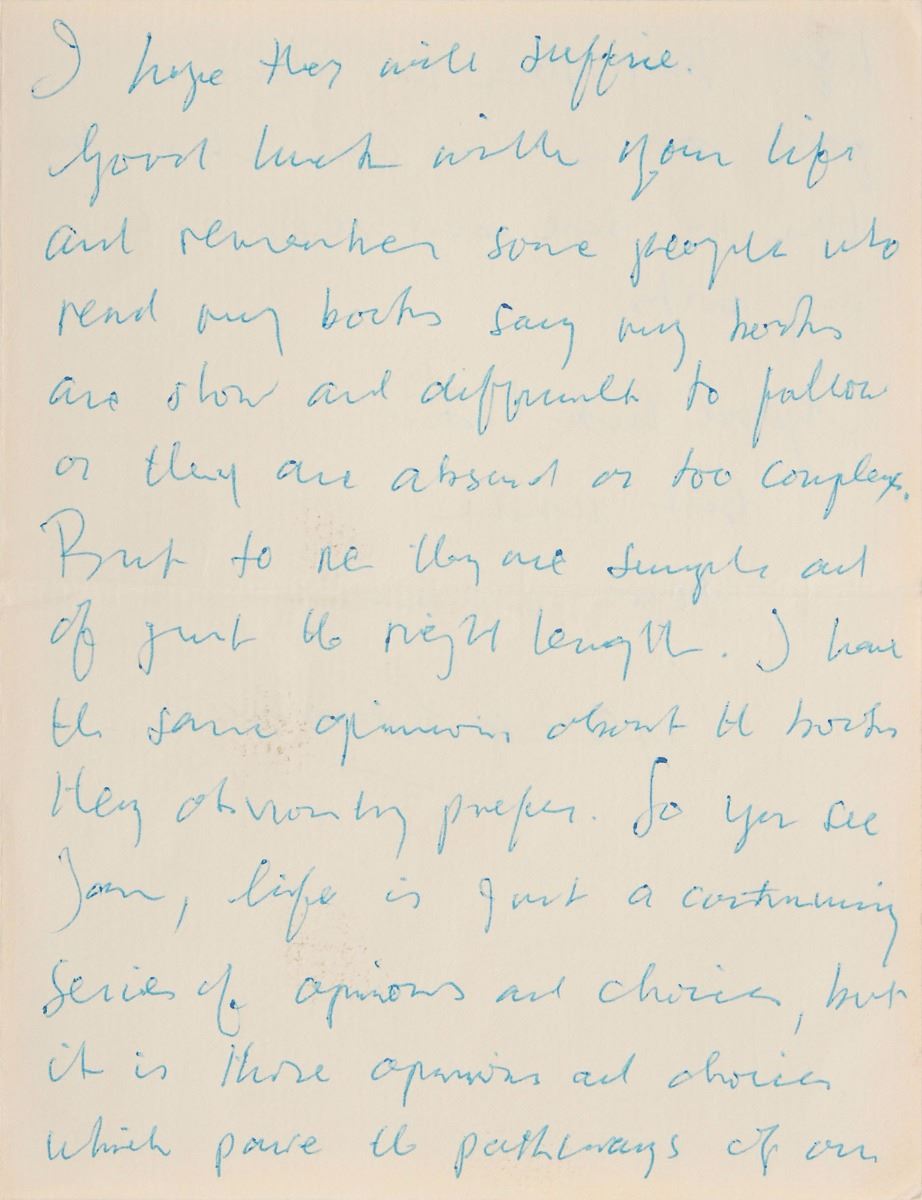 I hope they will suffice.
Good luck with your life
and remember some people who
read my books say my books
are slow and difficult to follow
or they are absurd or too complex.
But to me they are simple and
of just the right length. I have
the same opinions about the books
they obviously prefer. So you see
Joan, life is just a continuing
series of opinions and choices, but
it is those opinions and choices
which pave the pathways of our